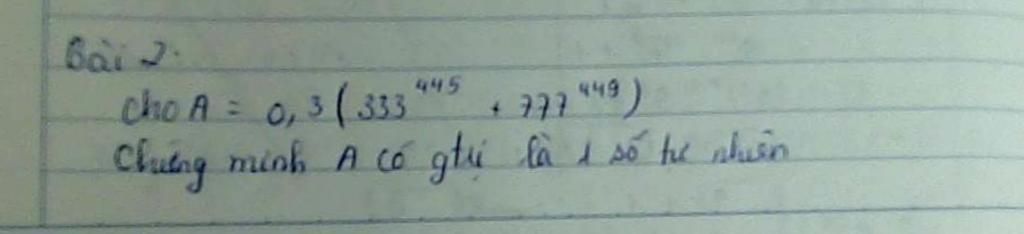 Bài 2.
cho A = 0,3 ( 333^445 + 777^449 )
Chứng minh A có gtrị là 1 số tự nhiên